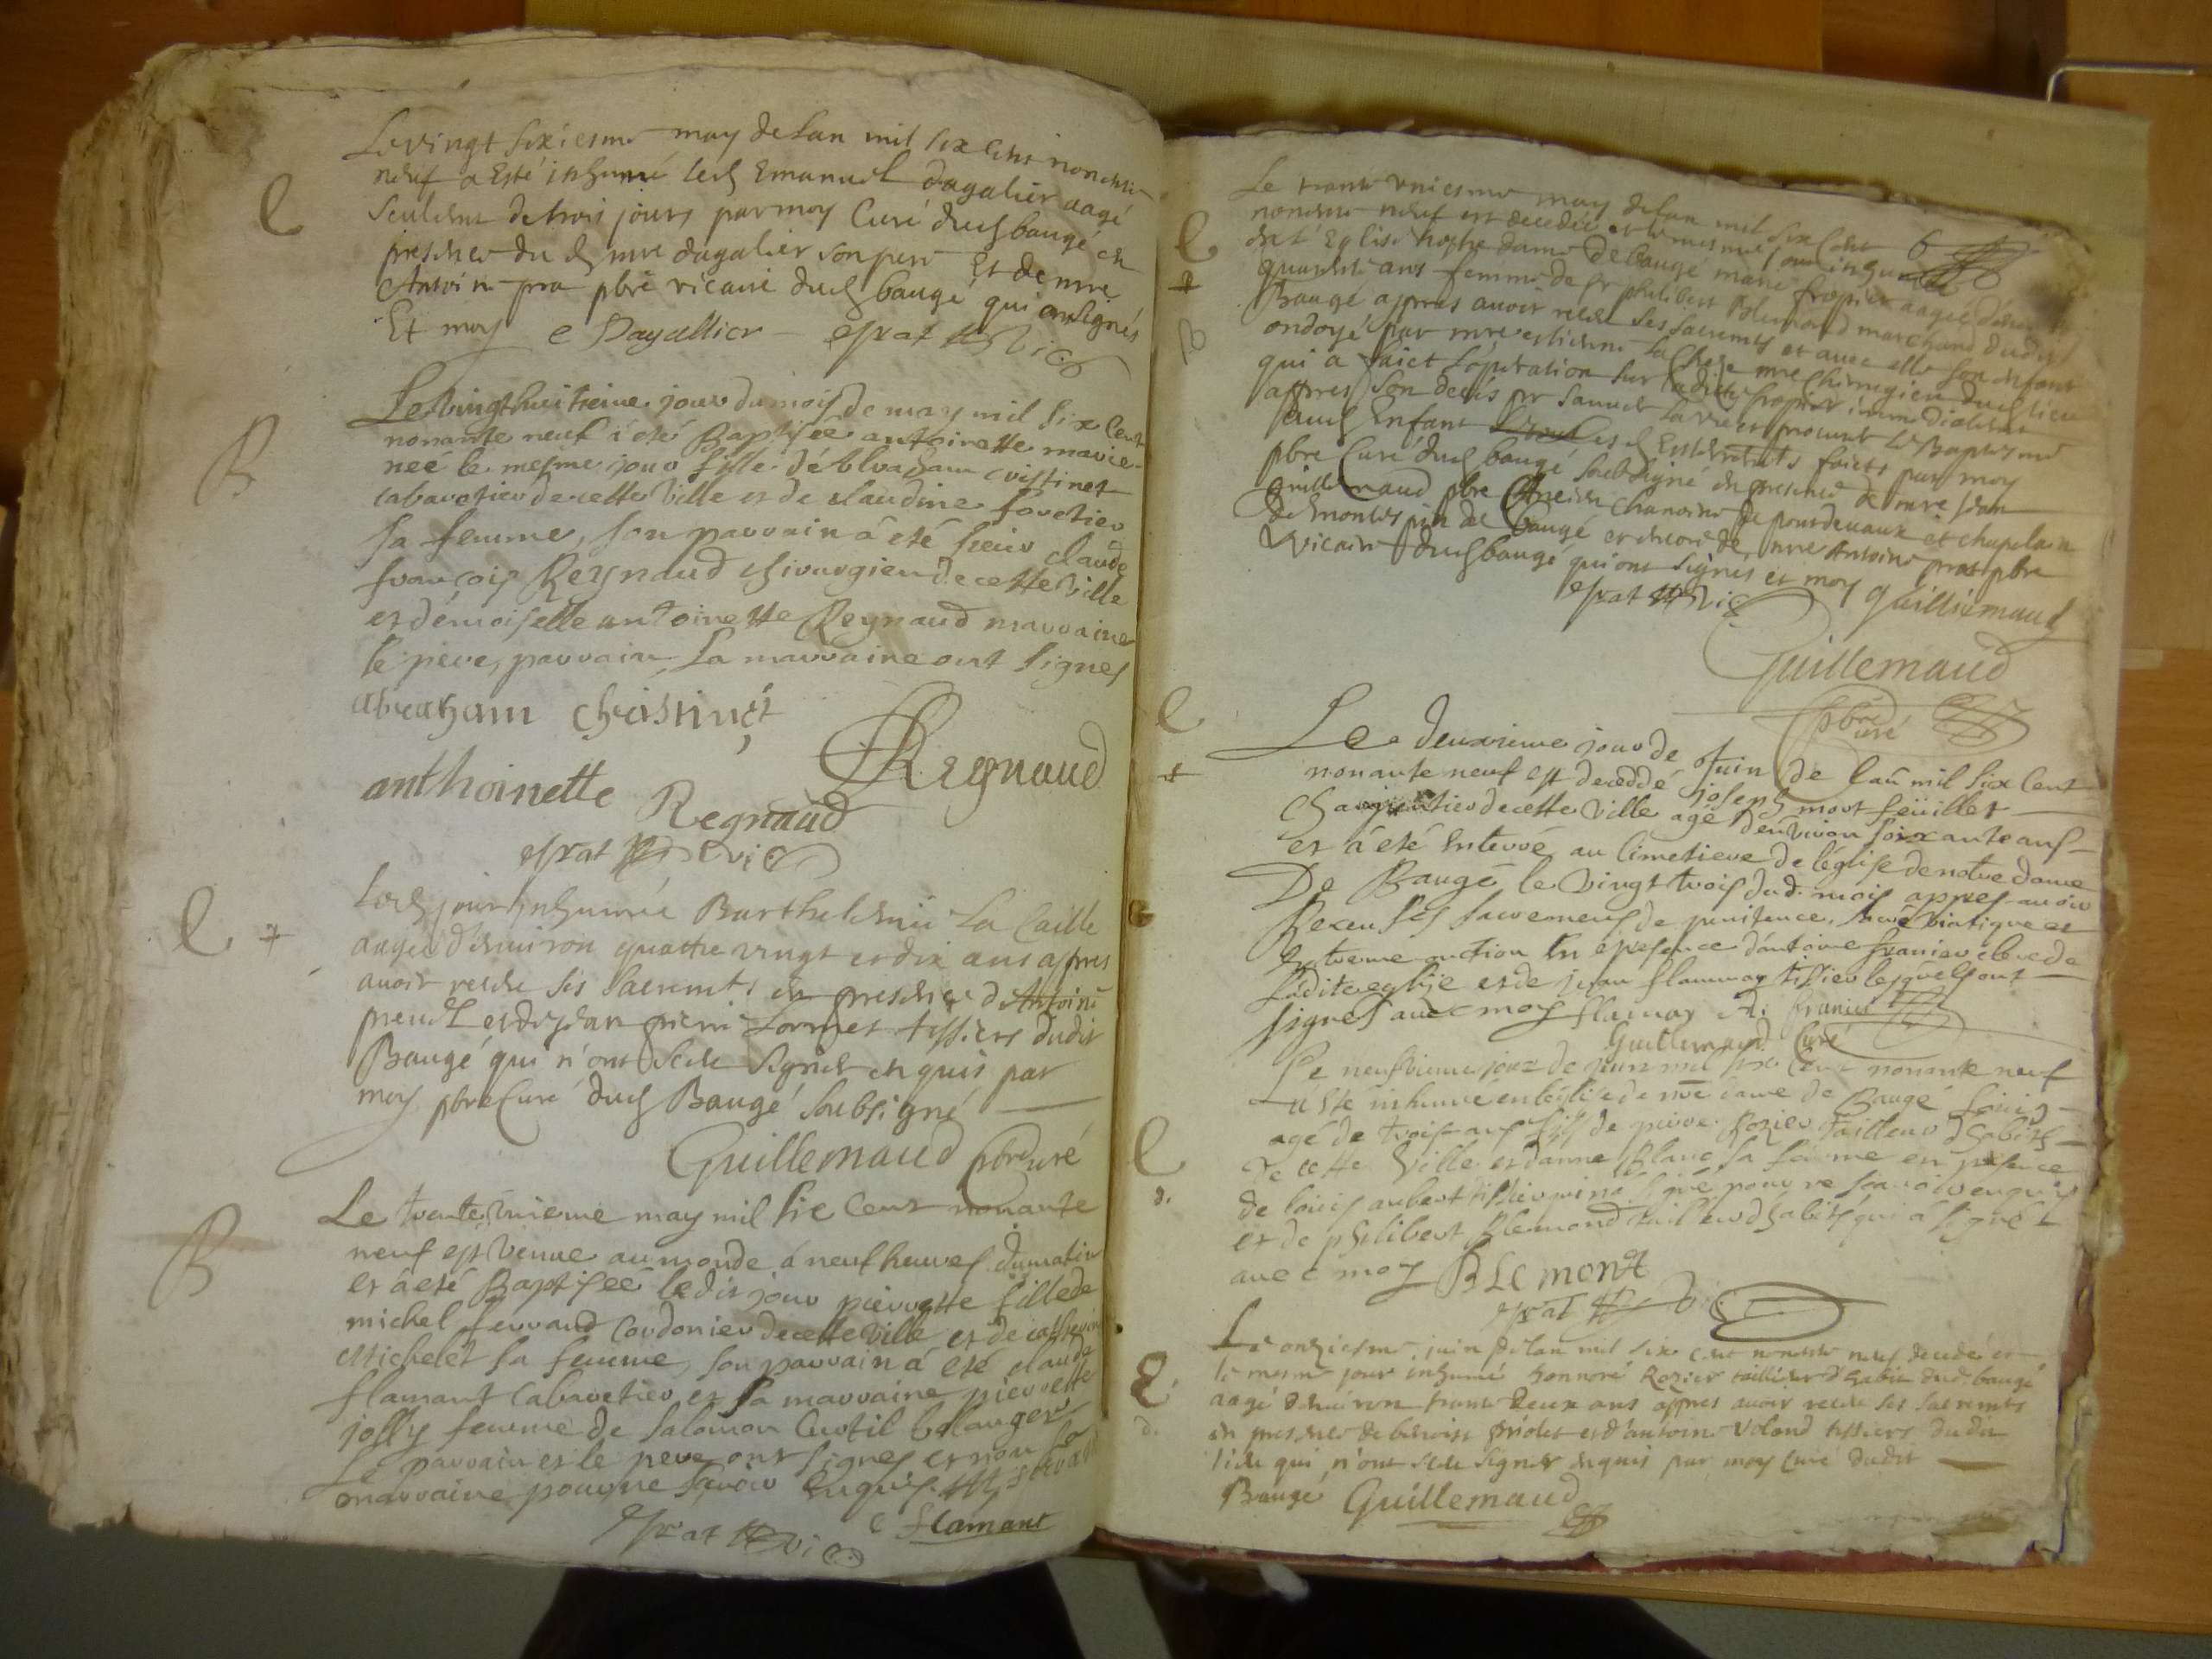 Le vingt sixiesme may de lan mil six cent nonente
neuf a esté inhumé led Emanuel dagalier aagé
seulemt de trois jours par moy Curé dud baugé en
presence du d mre dagalier son pere Et de mre
Antoine pra pbre vicaire dud baugé qui ont signés
Et moy e Dagallier Prat vic
Le vingt huitieme jour du mois de may mil six Cent
nonante neuf à eté Baptisee antoinette marie
neé le mesme jour fille d'
cabaretier de cette ville et de claudine foretier
sa femme, son parrain à eté sieur claude
françois Reynaud chirurgien de cette ville
et démoiselle antoinette Reynaud marraine
le pere, parrain, la marraine ont signes
abraham christinet
Regnaud
anthoinette Regnaud
Prat vic
Led jour inhumée Barthelemie La Caille
aagee d'environ quattre vingt et dix ans apres
avoir receu ses sacremts en presence d'Antoine
et de jean pierre tissiers dudit
Baugé qui n'ont sceu signer enquis par
moy pbre Curé dud Baugé soubsigné
Guillemaud pbre curé
Le trente unieme may mil six Cent nonante
neuf est venue au monde à neuf heures du matin
et à eté Baptisée ledit jour pierrette fille de
michel ferrand Cordonier de cette ville et de catherine
michelet sa femme, son parrain à eté claude
flamant Cabaretier et sa marraine pierrette
jolly femme de Salomon Curtil bolanger
Le parrain et le pere ont signes et non la
marraine pour ne savoir enquis. M ferrand
Prat vic C flamant
Le trente uniesme may de lan mil six Cent 6
nonente neuf est decedée et le mesme jour inhumée
en l'Eglise nostre dame de baugé marie fropier aagée denviron
quarente ans femme de sr philibert Blemond marchand dudit
Baugé apres avoir receu ses sacremts et avec elle son enfant
ondoyé par mre estienne mre chirurgien dud lieu
qui a faict l'operation sur ladite fropier immediatemt
apres son decés sr samuel et le Baptesme
aud Enfant Enterremts faicts par moy
pbre Curé dud baugé soubsigné en presence de mre jean
guillemaud pbre Ancien chanoine de pontdevaux et chapelain
de baugé et encore de mre Antoine prat pbre
vicaire dud baugé qui ont signes et moy guilliemaud
Prat vic
Guillemaud
pbre curé
Le deuxieme jour de Juin de lan mil six Cent
nonante neuf est deceddé joseph mort feüillet
Charpentier de cette ville agé d'environ soixante ans
et à eté enterré au Cimetiere de léglise de notre dame
De Baugé le vingt trois dud. mois apres avoir
Receu les sacremens de penitence, viatique et
Extreme onction En presence d'antoine franier clerc de
Ladite eglise et de jean flammay tissier lesquels ont
signes avec moy flamay A. franier
Guillemaud Curé
Le neufvieme jour de juin mil six Cent nonante neuf
a esté inhumé en leglise de nre dame de Baugé Louis
agé de trois ans fils de pierre Rozier tailleur dhabits
de cette ville et danne Blanc sa femme en presence
de louis aubert tissier qui na signé pour ne scavoir enquis
et de philibert Blemond tailleur dhabits qui à signé
avec moy BLemont
Prat vic
Le onziesme juin de lan mil six cent nonente neuf decedé et
le mesme jour inhumé honnoré Rozier taillieur d'habit dud baugé
aagé denviron trente deux ans apres avoir receu ses sacremts
en presence de benoist priolet et d'antoine Voland tissiers dudit
lieu qui n'ont sceu signer enquis par moy curé dudit
Baugé Guillemaud